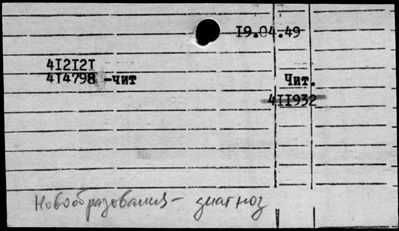 19.04.49
412121
414798 -чит
Чит.
411932
Новообразования - диагноз